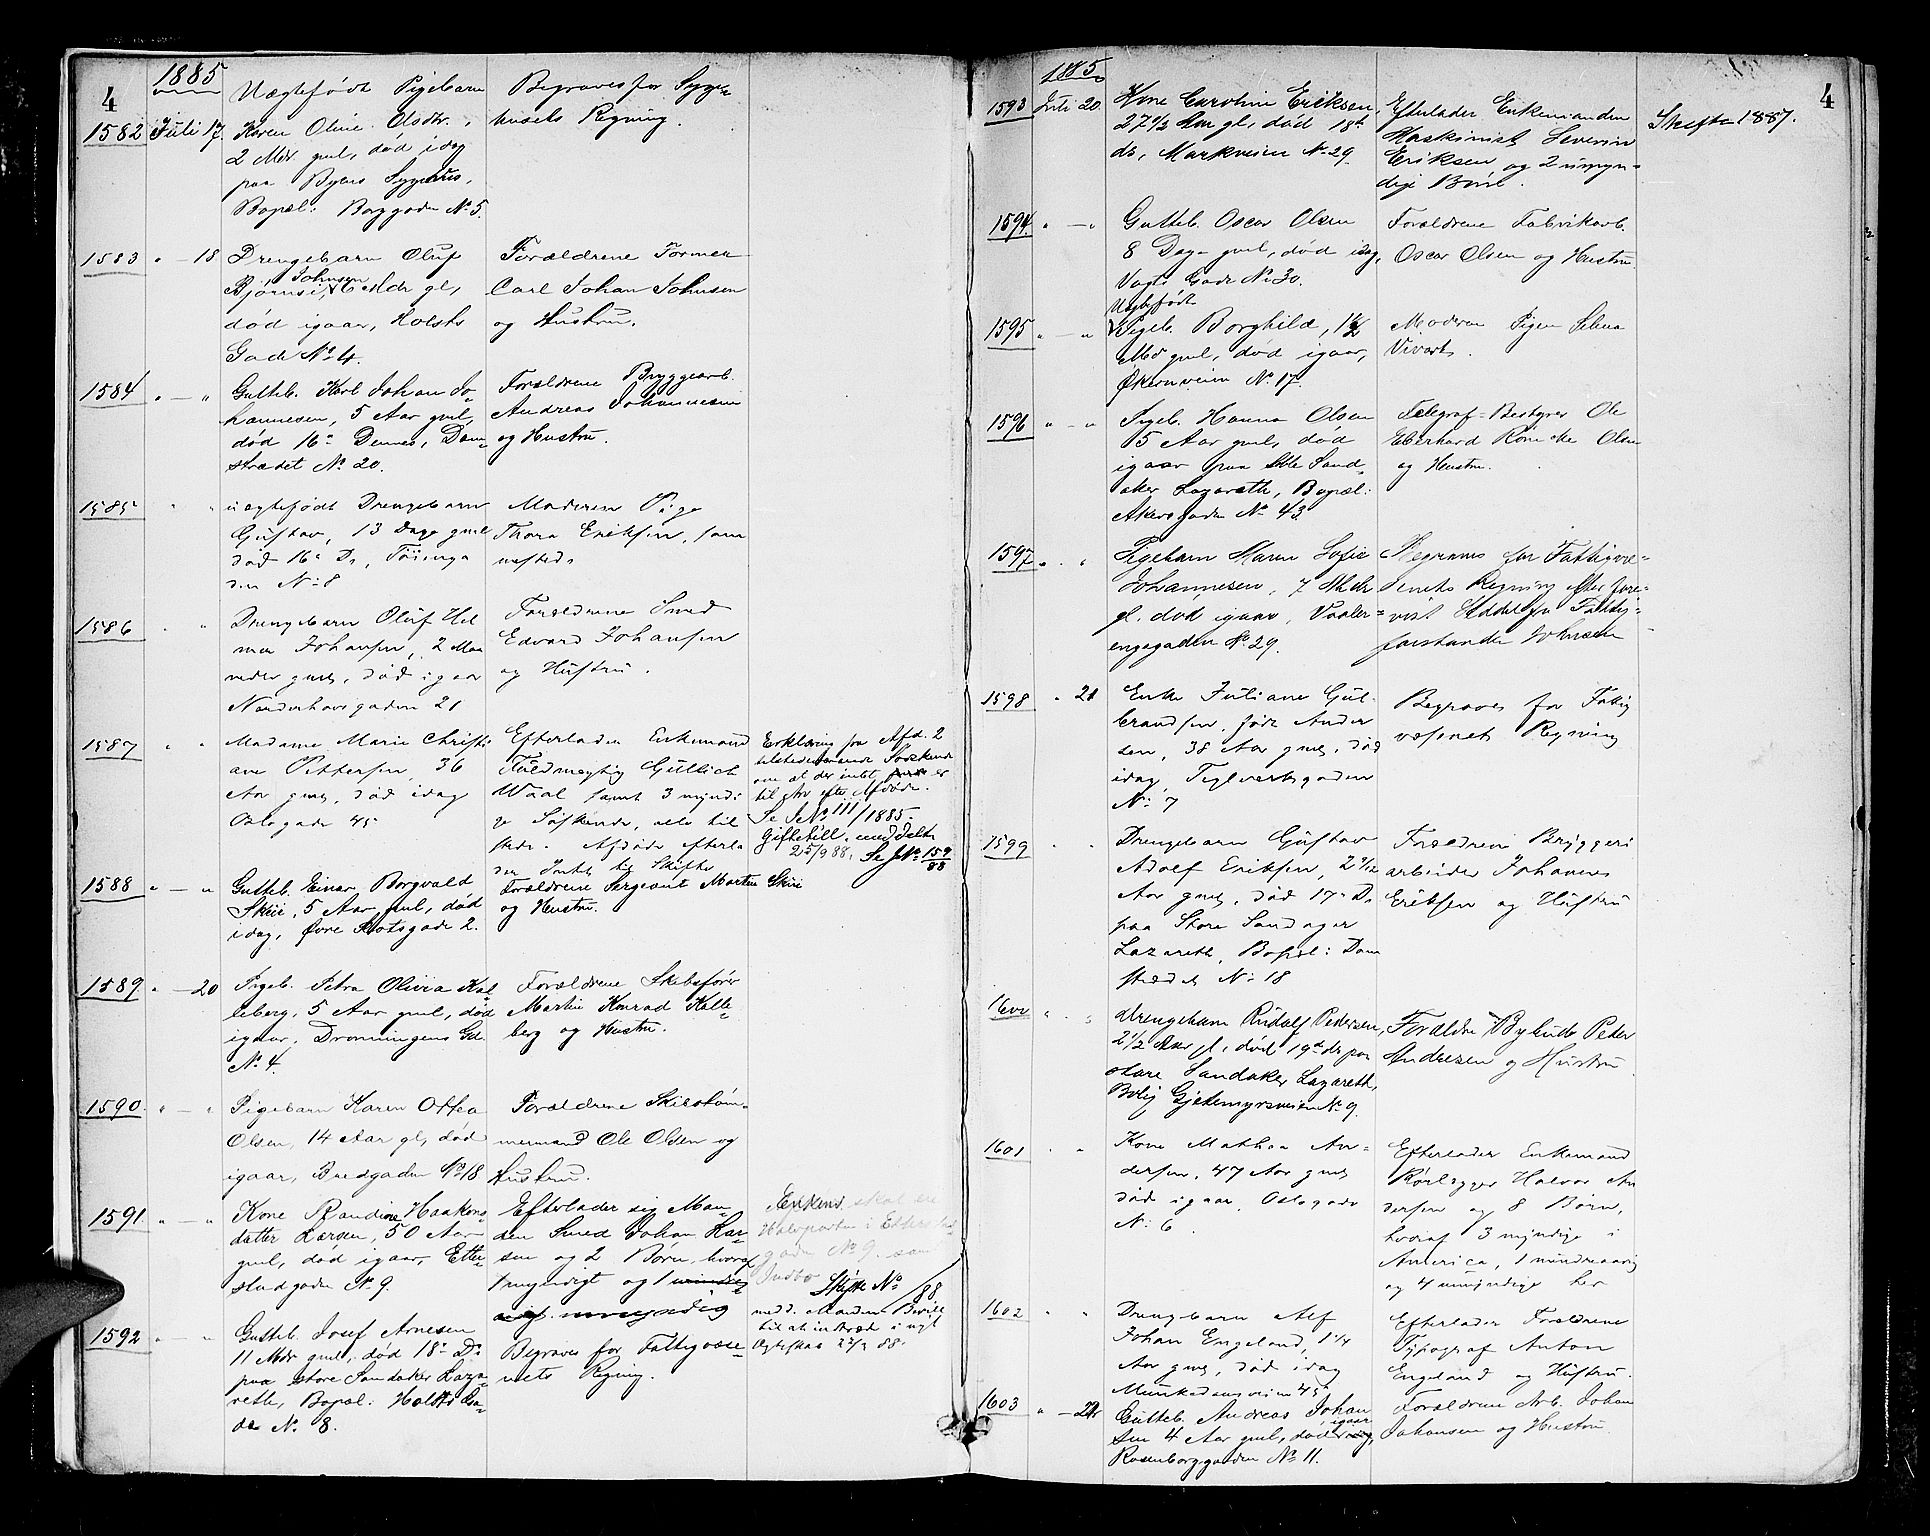 4
1885
1582 Juli 17
Uægtefødt Pigebarn
Karen Oline Olsdtr.,
2 Mdr gml, død idag
paa Byens Sygehus,
Bopæl: Borggaden No 5.
Begraves for Syge-
husets Regning.
1583 " — 18
Drengebarn Oluf
Johnsen
Bjørnsi, Mdr gl,
død igaar, Holsts
Gade No 4.
Forældrene Former
Carl Johan Johnsen
og Hustru.
1584 " — "
Gutteb. Karl Johan Jo-
hannesen, 5 Aar gml,
død 16de Dennes, Dam-
strædet No 20.
Forældrene Bryggearb.
Andreas Johannesen
og Hustru.
1585 " "
uægtefødt Drengebarn
Gustav, 13 Dage gml
død 16de Ds, Tøienga
den No 8
Moderen Pige
Thora Eriksen, sam
mesteds
1586 " "
Drengebarn Oluf Hel
mer Johansen, 2 Maa
neder gml, død igaar
Norderhovsgaden 21
Forældrene Smed
Edvard Johansen
og Hustru.
1587 " "
Madame Marie Christi
ane Pettersen, 36
Aar gml, død idag
Oslogade 45
Efterlader Enkemand
Fuldmægtig Gullich
Waal samt 3 myndi
ge Søskende, alle til
stede. Afdøde efterla
der Intet til Skifte
Erklæring fra Afd. 2
tilstedeværende Søskende
om at der intet er
til Arv efter Afdøde.
Se J No 111/1885.
Giftetill. meddelt
25/9 88. Se J No 159/88
1588 " — "
Gutteb. Einar Borgvald
Skui, 5 Aar gml, død
idag, Øvre Slotsgade 2.
Forældrene Sergeant Morten Skui
og Hustru.
1589 " — 20
Pigeb. Petra Olivia Kal
leberg, 5 Aar gml, død
igaar, Dronningens Gd.
No 4.
Forældrene Skibsfører
Martin Konrad Kalle-
berg og Hustru.
1590. " — "
Pigebarn Karen Othea
Olsen, 14 Aar gl, død
igaar, Bredgaden No 18
Forældrene Skibstøm-
mermand Ole Olsen og
Hustru.
1591. " — "
Kone Randine Haakens-
datter Larsen, 50 Aar
gml, død igaar, Etter-
stadgaden No 9.
Efterlader sig Man-
den Smed Johan Lar-
sen og 2 Børn, hvoraf
1 myndigt og 1 mindre
aarigt umyndig
Enkem. skal eie
Halvparten i Ettersted-
gaden No 9. samt
Indbo Skifte No /88
medd. Manden Bevill
til at indtræde i nyt
Ægteskab 27/2 88.
1592 " — "
Gutteb. Josef Arnesen
11 Mdr gml, død 18de Ds
paa store Sandaker Laza-
reth, Bopæl. Holsts Ga-
de No 8.
Begraves for Fattigvæse-
nets Regning.
4
1885
1593 Juli 20.
Kone Caroline Eriksen,
27 1/2 Aar gl, død 18de
ds, Markveien No 29.
Efterlader Enkemanden
Maskinist Severin
Eriksen og 2 umyn-
dige Børn.
Skifte 1887.
1594. " — "
Gutteb. Oscar Olsen
8 Dage gml, død idag,
Vogts Gade No 30.
Forældrene Fabrikarb.
Oscar Olsen og Hustru.
1595 " — "
Uægtefødt
Pigeb. Borghild, 1 1/2
Md gml, død igaar,
Økernveien No 17.
Moderen Pigen Selma
Vivarts.
1596 " — "
Pigeb. Hanna Olsen
5 Aar gml, død
igaar paa Lille Sand-
aker Lazareth, Bopæl:
Akersgaden No 43.
Telegraf-Bestyrer Ole
Eberhard Rønicke Olsen
og Hustru.
1597 " "
Pigebarn Maren Sofie
Johannesen, 7 Mdr
gl, død igaar, Vaaler-
engagaden No 29.
Begraves for Fattigvæ-
senets Regning efter fore-
vist Seddel fra Fattig-
forstander Johnsen
1598 " 21
Enke Juliane Gul-
brandsen, født Ander
sen, 38 Aar gml, død
idag, Teglverksgaden
No 7
Begraves for Fattig
væsenets Regning
1599 " "
Drengebarn Gustav
Adolf Eriksen, 2 7/12
Aar gml, død 17de Ds
paa Store Sandager
Lazareth, Bopæl: Dam
strædet No 18
Forældrene Bryggeri
arbeider Johannes
Eriksen og Hustru
1600 " "
Drengebarn Rudolf Pedersen,
2 1/2 Aar gl, død 19de ds paa
store Sandaker Lazareth,
Bolig Gjetemyrsveien No 9.
Forældre Bybud Peder
Andresen og Hustru
1601 " "
Kone Mathea An-
dersen, 47 Aar gml
død igaar, Oslogade
No 6
Efterlader Enkemand
Rørlægger Halvor An
dersen og 8 Børn,
hvoraf 3 myndige i
America, 1 mindreaarig
og 4 umyndige her
1602 " "
Drengebarn Alf
Johan Engeland, 1 1/4
Aar gml, død idag
Munkedamsveien 45
Efterlader Forældrene
Typograf Anton
Engeland og Hustru.
1603 " — 21
Gutteb. Andreas Johan
sen 4 Aar gml, død igaar,
Rosenborggaden No 11.
Forældrene Arb. Johan
Johansen og Hustru.